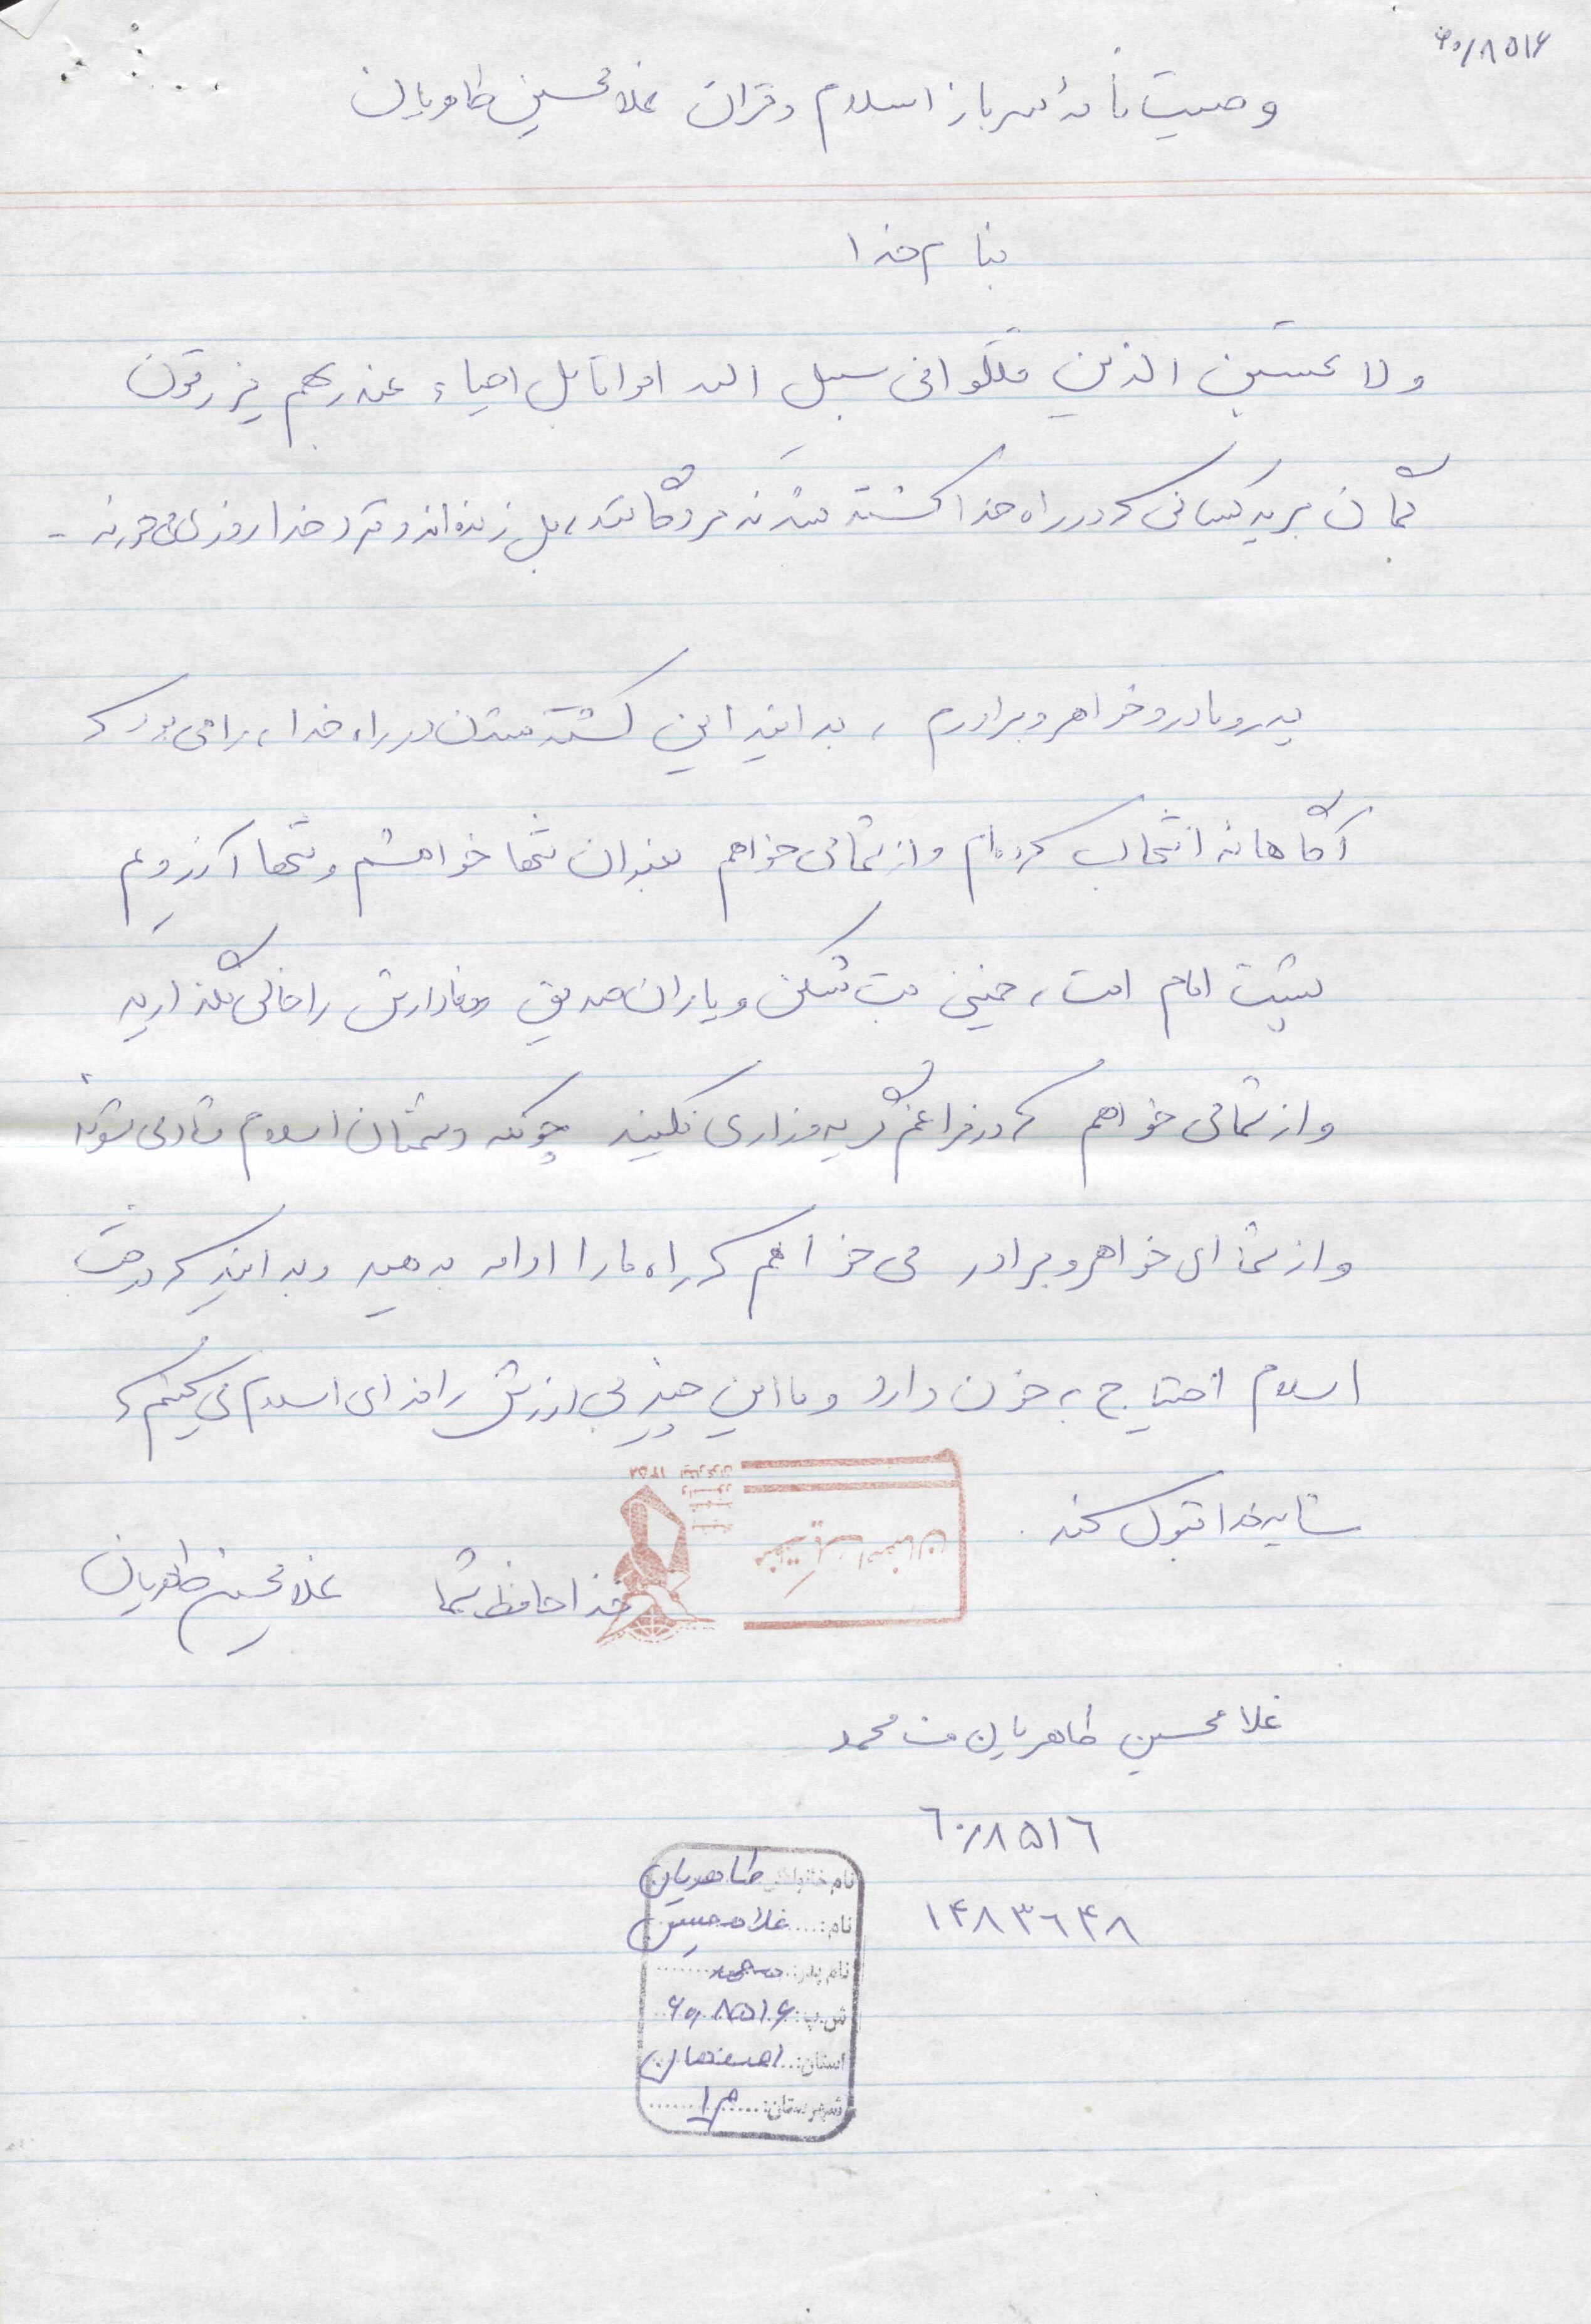 ۶۰/۸۵۱۶
وصیت نامه سرباز اسلام و قران غلامحسین طاهریان
بنام خدا
ولا تحسبن الذین قتلوا فی سبیل الله امواتا بل احیاء عند ربهم یرزقون
گمان مبرید کسانی که در راه خدا کشته شدند مردگانند، بل زنده‌اند و نزد خدا روزی می‌خورند -
پدر و مادر و خواهر و برادرم، بدانید این کشته شدن در راه خدا، راهی بود که
آگاهانه انتخاب کرده‌ام و از شما می‌خواهم بعنوان تنها خواهشم و تنها آرزویم
پشت امام امت، خمینی بت شکن و یاران صدیق وفادارش را خالی نگذارید
و از شما می‌خواهم که در فراغم گریه و زاری نکنید چونکه دشمنان اسلام شاد می‌شوند
و از شما ای خواهر و برادر می‌خواهم که راه ما را ادامه بدهید و بدانید که درخت
اسلام احتیاج به خون دارد و ما این چیز بی ارزش را فدای اسلام می‌کنیم که
شاید خدا قبول کند.
خدا حافظ شما غلامحسین طاهریان
غلامحسین طاهریان محمد
۶۰/۸۵۱۶
۱۴۸۳۶۴۸
نام خانوادگی: طاهریان
نام: غلامحسین
نام پدر: محمد
ش.پ: ۶۰/۸۵۱۶
استان: اصفهان
شهرستان: